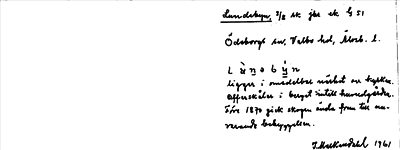 Lundsbyn, 3/8 sk jbr ek G 51
Ödeborgs sn, Valbo hd, Älvsb. l.
L à n o b ý n
ligger i omedelbar närhet av kyrkan.
Offerskålar i berget intill huvudgården.
Före 1870 gick skogen ända fram till nu-
varande bebyggelsen.
1961